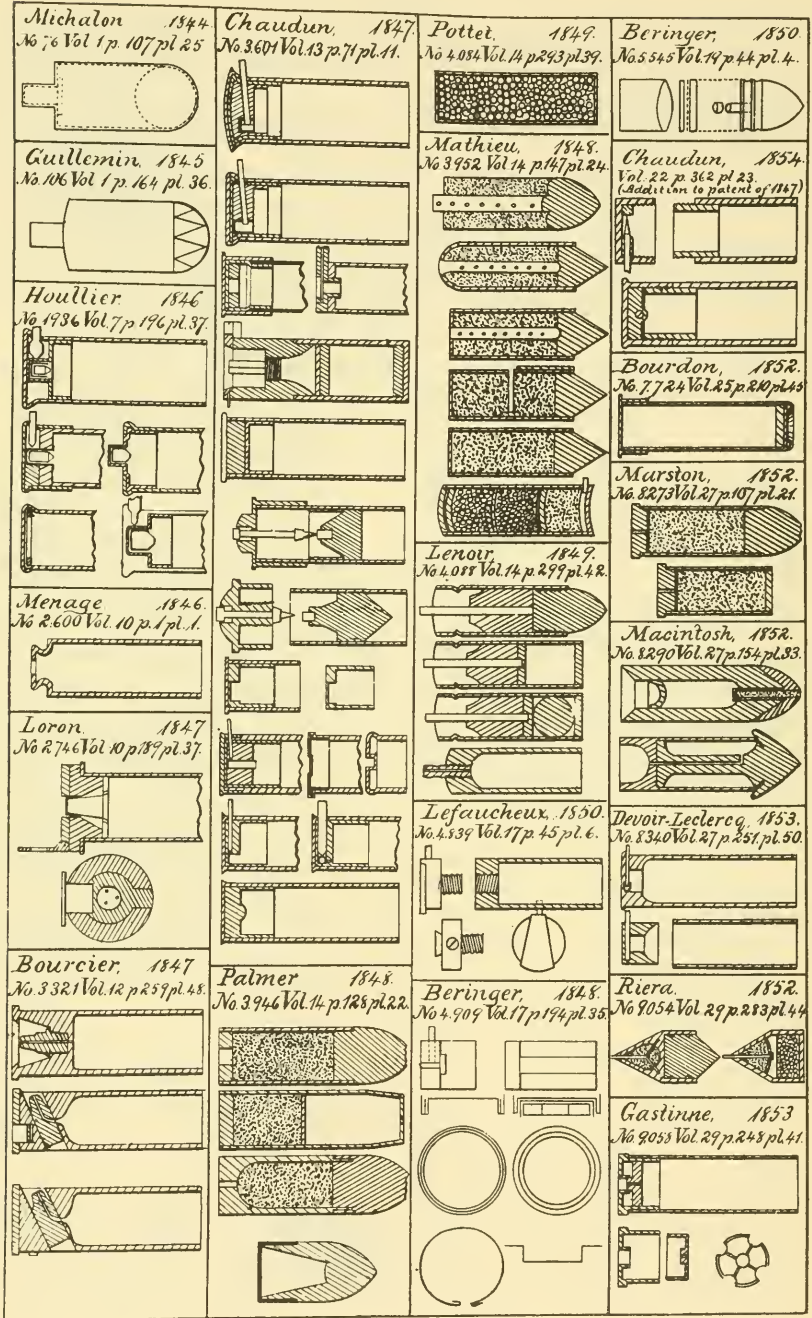 Michalon 1844.
No 76 Vol 1 p. 107 pl 25
Guillemin, 1845
No. 106 Vol 1 p. 164 pl. 36.
Houllier 1846
No 1936 Vol. 7 p 196 pl. 37.
Menage 1846.
No 2.600 Vol. 10 p. 1 pl. 1.
Loron, 1847
No 2.746 Vol 10 p 189 pl. 37.
Bourcier, 1847
No. 3.321 Vol. 12 p 259 pl. 48.
Chaudun, 1847.
No. 3.601 Vol. 13 p. 71 pl. 11.
Palmer 1848.
No. 3.946 Vol. 14 p. 128 pl. 22.
Pottet, 1849.
No 4.084 Vol. 14 p 293 pl 39.
Mathieu, 1848.
No 3952 Vol 14 p. 147 pl. 24.
Lenoir, 1849.
No 4.088 Vol. 14 p. 299 pl. 42.
Lefaucheux, 1850.
No. 4.839 Vol. 17 p. 45 pl. 6.
Beringer, 1848.
No 4.909 Vol. 17 p 194 pl. 35.
Beringer, 1850
No. 5.545 Vol. 19 p 44 pl. 4.
Chaudun, 1854.
Vol. 22 p. 362 pl 23.
(Addition to patent of 1847)
Bourdon, 1852.
No. 7.724 Vol. 25 p. 210 pl. 45
Marston, 1852.
No. 8273 Vol. 27 p. 107 pl. 21.
Macintosh, 1852.
No. 8290 Vol. 27 p. 154 pl. 33.
Devoir-Leclercq, 1853.
No. 8340 Vol. 27 p. 251. pl. 50.
Riera, 1852.
No 9054 Vol. 29 p. 283 pl. 44
Gastinne, 1853
No. 9058 Vol. 29 p. 248 pl. 41.